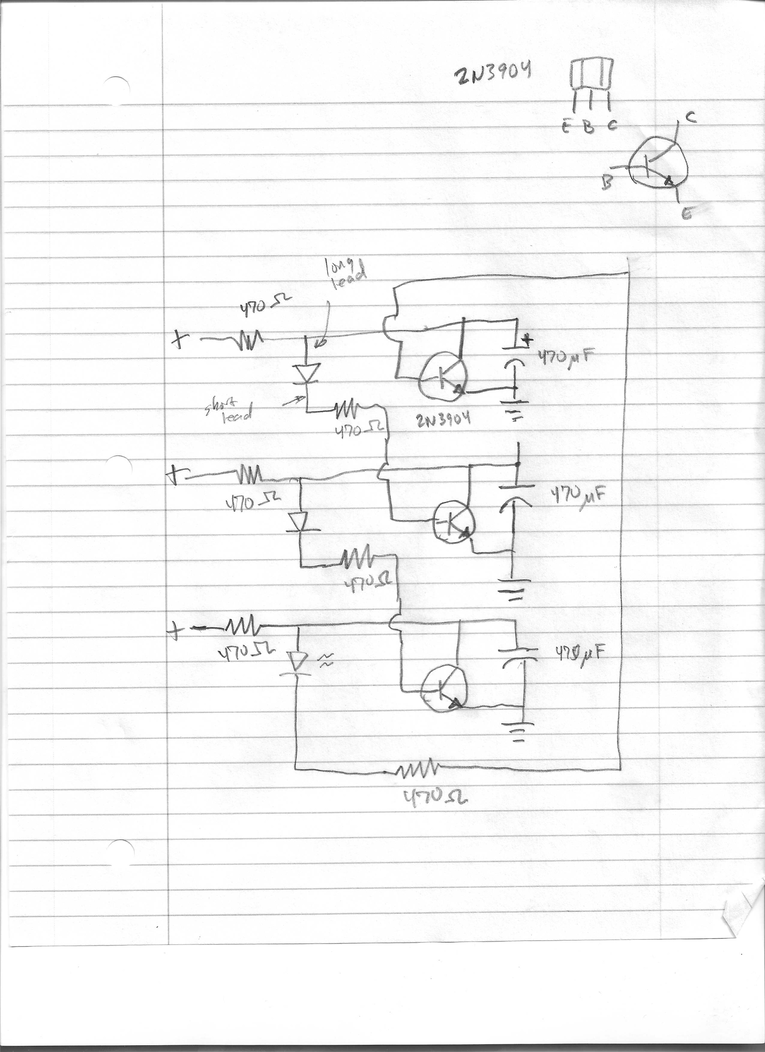 2N3904
E B C
C
B
E
long
lead
470Ω
+
+
470μF
short
lead
470Ω
2N3904
+
470Ω
470μF
470Ω
+
470Ω
470μF
470Ω